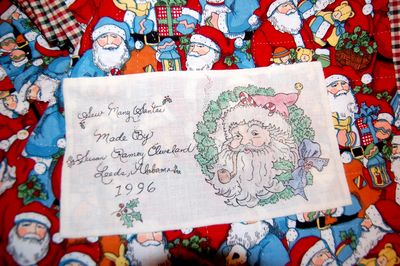 Sew Many Santas
Made By
Susan Ramey Cleveland
Leeds, Alabama
1996